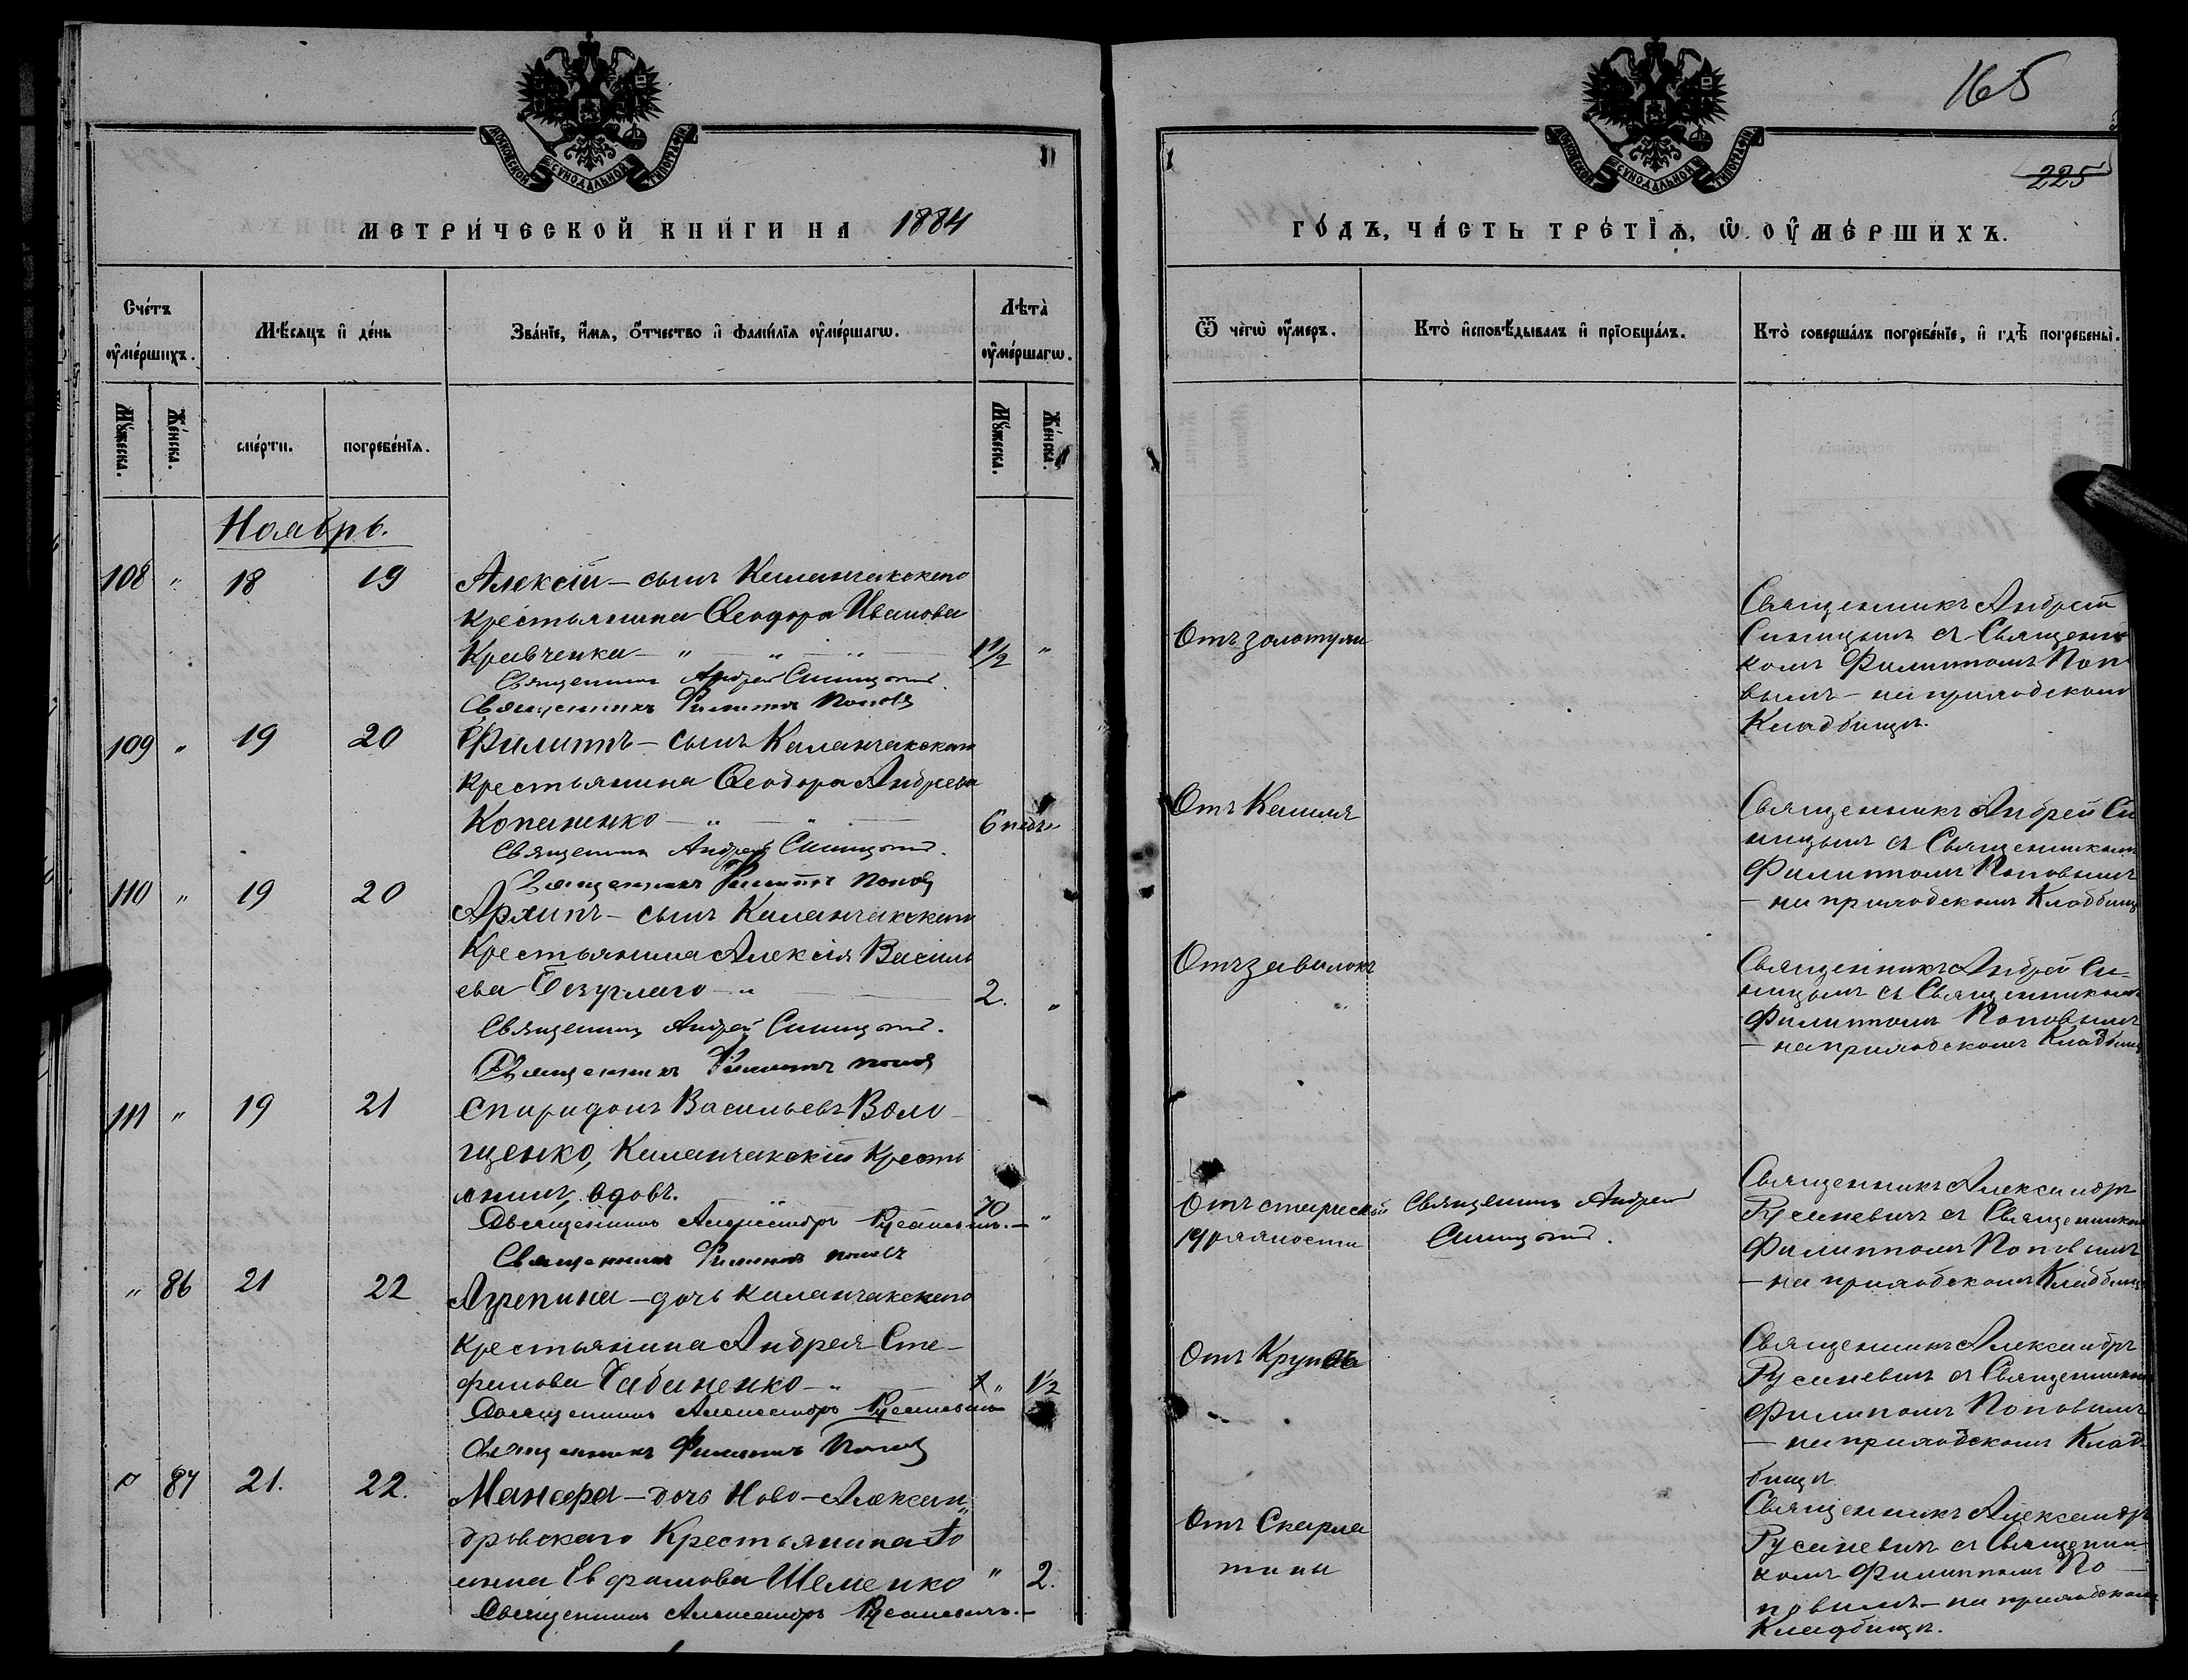 165
225
МОСКОВСКОЙ СѴНОДАЛЬНОЙ ТИПОГРАФІИ
МОСКОВСКОЙ СѴНОДАЛЬНОЙ ТИПОГРАФІИ
МЕТРИ́ЧЕСКОЙ КНИ́ГИ НА 1884
ГО́ДЪ, ЧА́СТЬ ТРЕ́ТІѦ, Ѡ ОУМЕ́РШИХЪ.
Сче́тъ оумє́ршихъ.
Мѣ́сяцъ и де́нь
Зва́нїе, и́мя, о́тчество и фами́лїя оуме́ршагѡ.
Лѣта̀ оуме́ршагѡ.
Ѿ чегѡ̀ оу́меръ.
Кто̀ исповѣ́дывалъ и прїобща́лъ.
Кто̀ соверша́лъ погребе́нїе, и гдѣ̀ погребены̀.
Мꙋ́жеска.
Же́нска.
сме́рти.
погребе́нїя.
Мꙋ́жеска.
Же́нска.
Ноябрь.
108 " 18 19 Алексій – сынъ Каланчакскаго
крестьянина Ѳеодора Иванова
Кравченка – " – " – " 1½ "
Священникъ Андрей Синицынъ.
Священникъ Филиппъ Поповъ
Отъ золотухи
Священникъ Андрей
Синицынъ съ Священни
комъ Филиппомъ Попо
вымъ – на приходскомъ
Кладбищѣ.
109 " 19 20 Филиппъ – сынъ Каланчакскаго
крестьянина Ѳеодора Андреева
Копаненко – " – " 6 недѣл
Священникъ Андрей Синицынъ.
Священникъ Филиппъ Поповъ
Отъ Кашля
Священникъ Андрей Си
ницынъ съ Священникомъ
Филиппомъ Поповымъ
– на приходскомъ Кладбищѣ
110 " 19 20 Архипъ – сынъ Каланчакскаго
Крестьянина Алексія Василь
ева Безуглаго – " 2. "
Священникъ Андрей Синицынъ.
Священникъ Филиппъ Поповъ
Отъ завалокъ
Священникъ Андрей Си-
ницынъ съ Священникомъ
Филиппомъ Поповымъ
– на приходскомъ Кладбищѣ
111 " 19 21 Спиридонъ Васильевъ Воло-
щенко, Каланчакскій Кресть
янинъ, вдовъ. 70 "
Священникъ Александръ Русаневичъ. –
Священникъ Филиппъ Поповъ
Отъ старческой
дряхлости
Священникъ Андрей
Синицынъ.
Священникъ Александръ
Русаневичъ съ Священникомъ
Филиппомъ Поповымъ
– на приходскомъ Кладбищѣ
" 86 21 22 Агрепина – дочь Каланчакскаго
крестьянина Андрея Сте-
фанова Чабаненко – " " 1/2
Священникъ Александръ Русаневичъ
Священникъ Филиппъ Поповъ
Отъ Крупа
Священникъ Александръ
Русаневичъ съ Священникомъ
Филипомъ Поповымъ
– на приходскомъ Клад-
бищѣ
" 87 21. 22. Манефа – дочь Ново-Алексан
дровскаго Крестьянина Іо
анна Евфимова Шеменко " 2.
Священникъ Александръ Русаневичъ. –
Отъ Скарла
тины
Священникъ Александръ
Русаневичъ съ Священни
комъ Филиппомъ По
повымъ – на приходскомъ
Кладбищѣ.